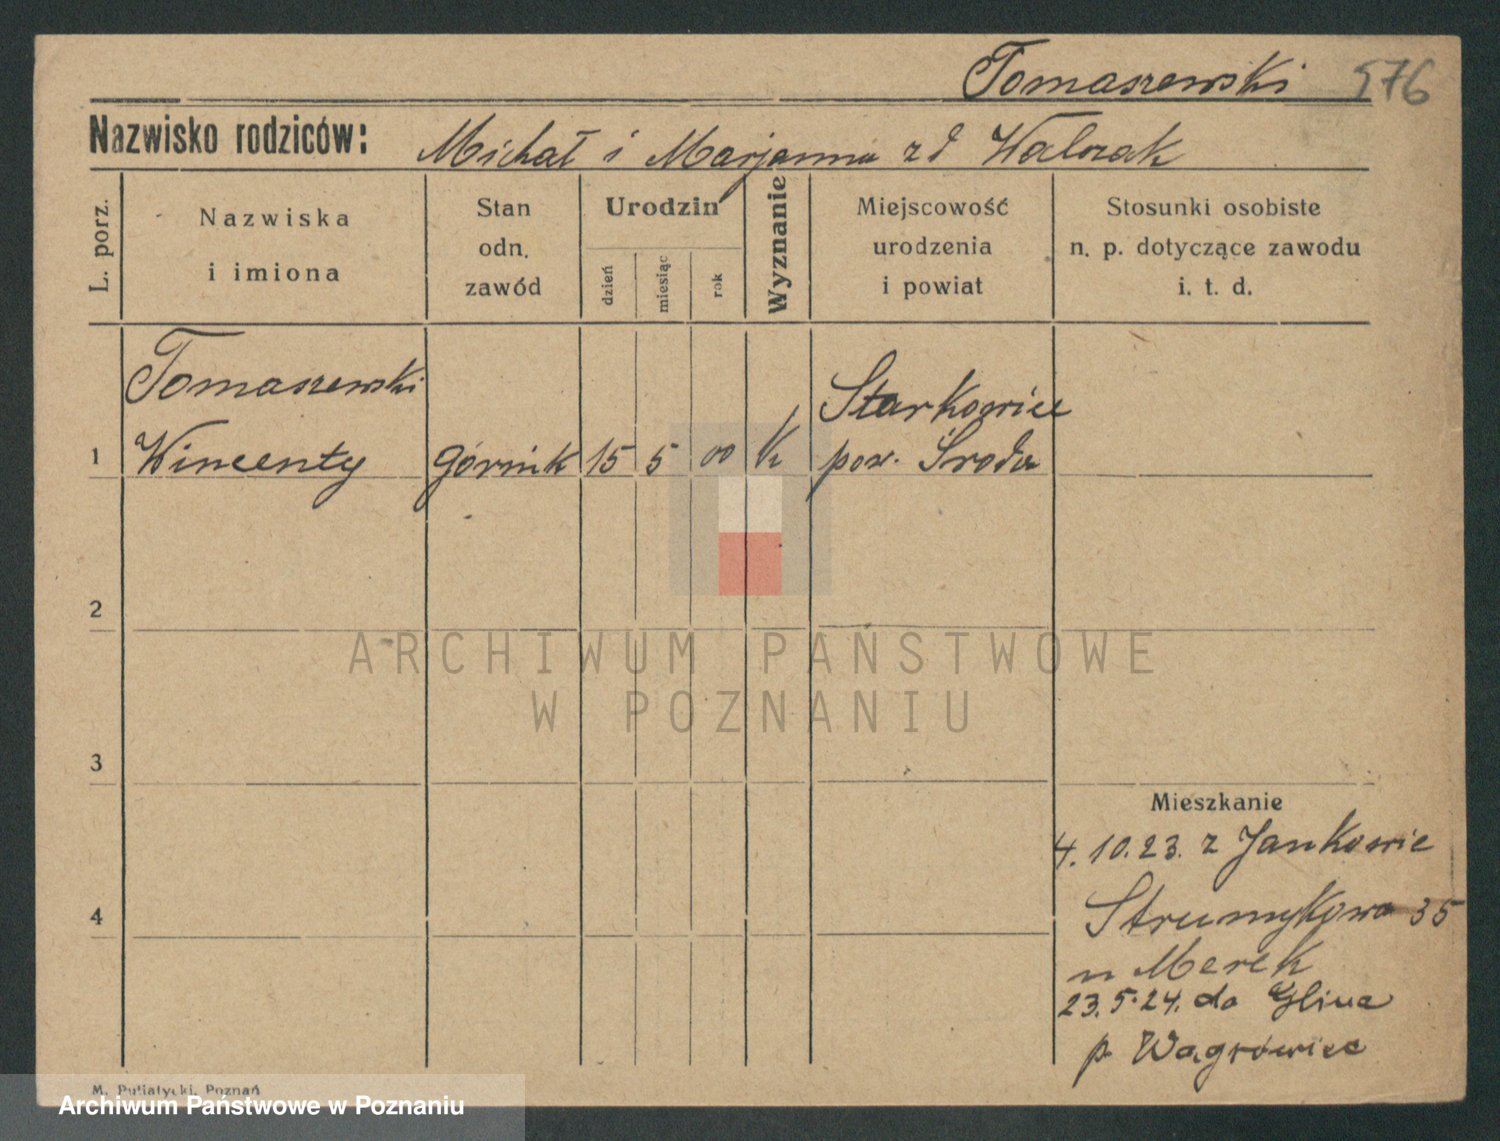 Tomaszewski 576
Nazwisko rodziców: Michał i Marjanna zd Walczak
L. porz.
Nazwiska
i imiona
Stan
odn.
zawód
Urodzin
dzień
miesiąc
rok
Wyznanie
Miejscowość
urodzenia
i powiat
Stosunki osobiste
n. p. dotyczące zawodu
i. t. d.
1
Tomaszewski
Wincenty
górnik
15 5 00 K
Starkowiec
pow. Środa
2
3
4
Mieszkanie
4.10.23. z Jankowic
Strumykowa 35
u Merek
23.5.24. do Glina
p. Wągrówiec
M. Putiatycki, Poznań
ARCHIWUM PAŃSTWOWE
W POZNANIU
Archiwum Państwowe w Poznaniu